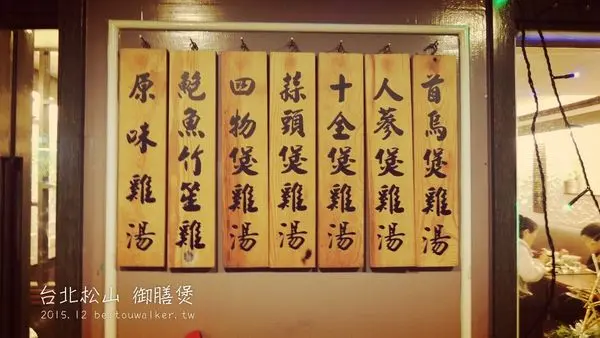 首烏煲雞湯
人蔘煲雞湯
十全煲雞湯
蒜頭煲雞湯
四物煲雞湯
鮑魚竹笙雞
原味雞湯
台北松山 御膳煲
2015.12 bestouwalker.tw